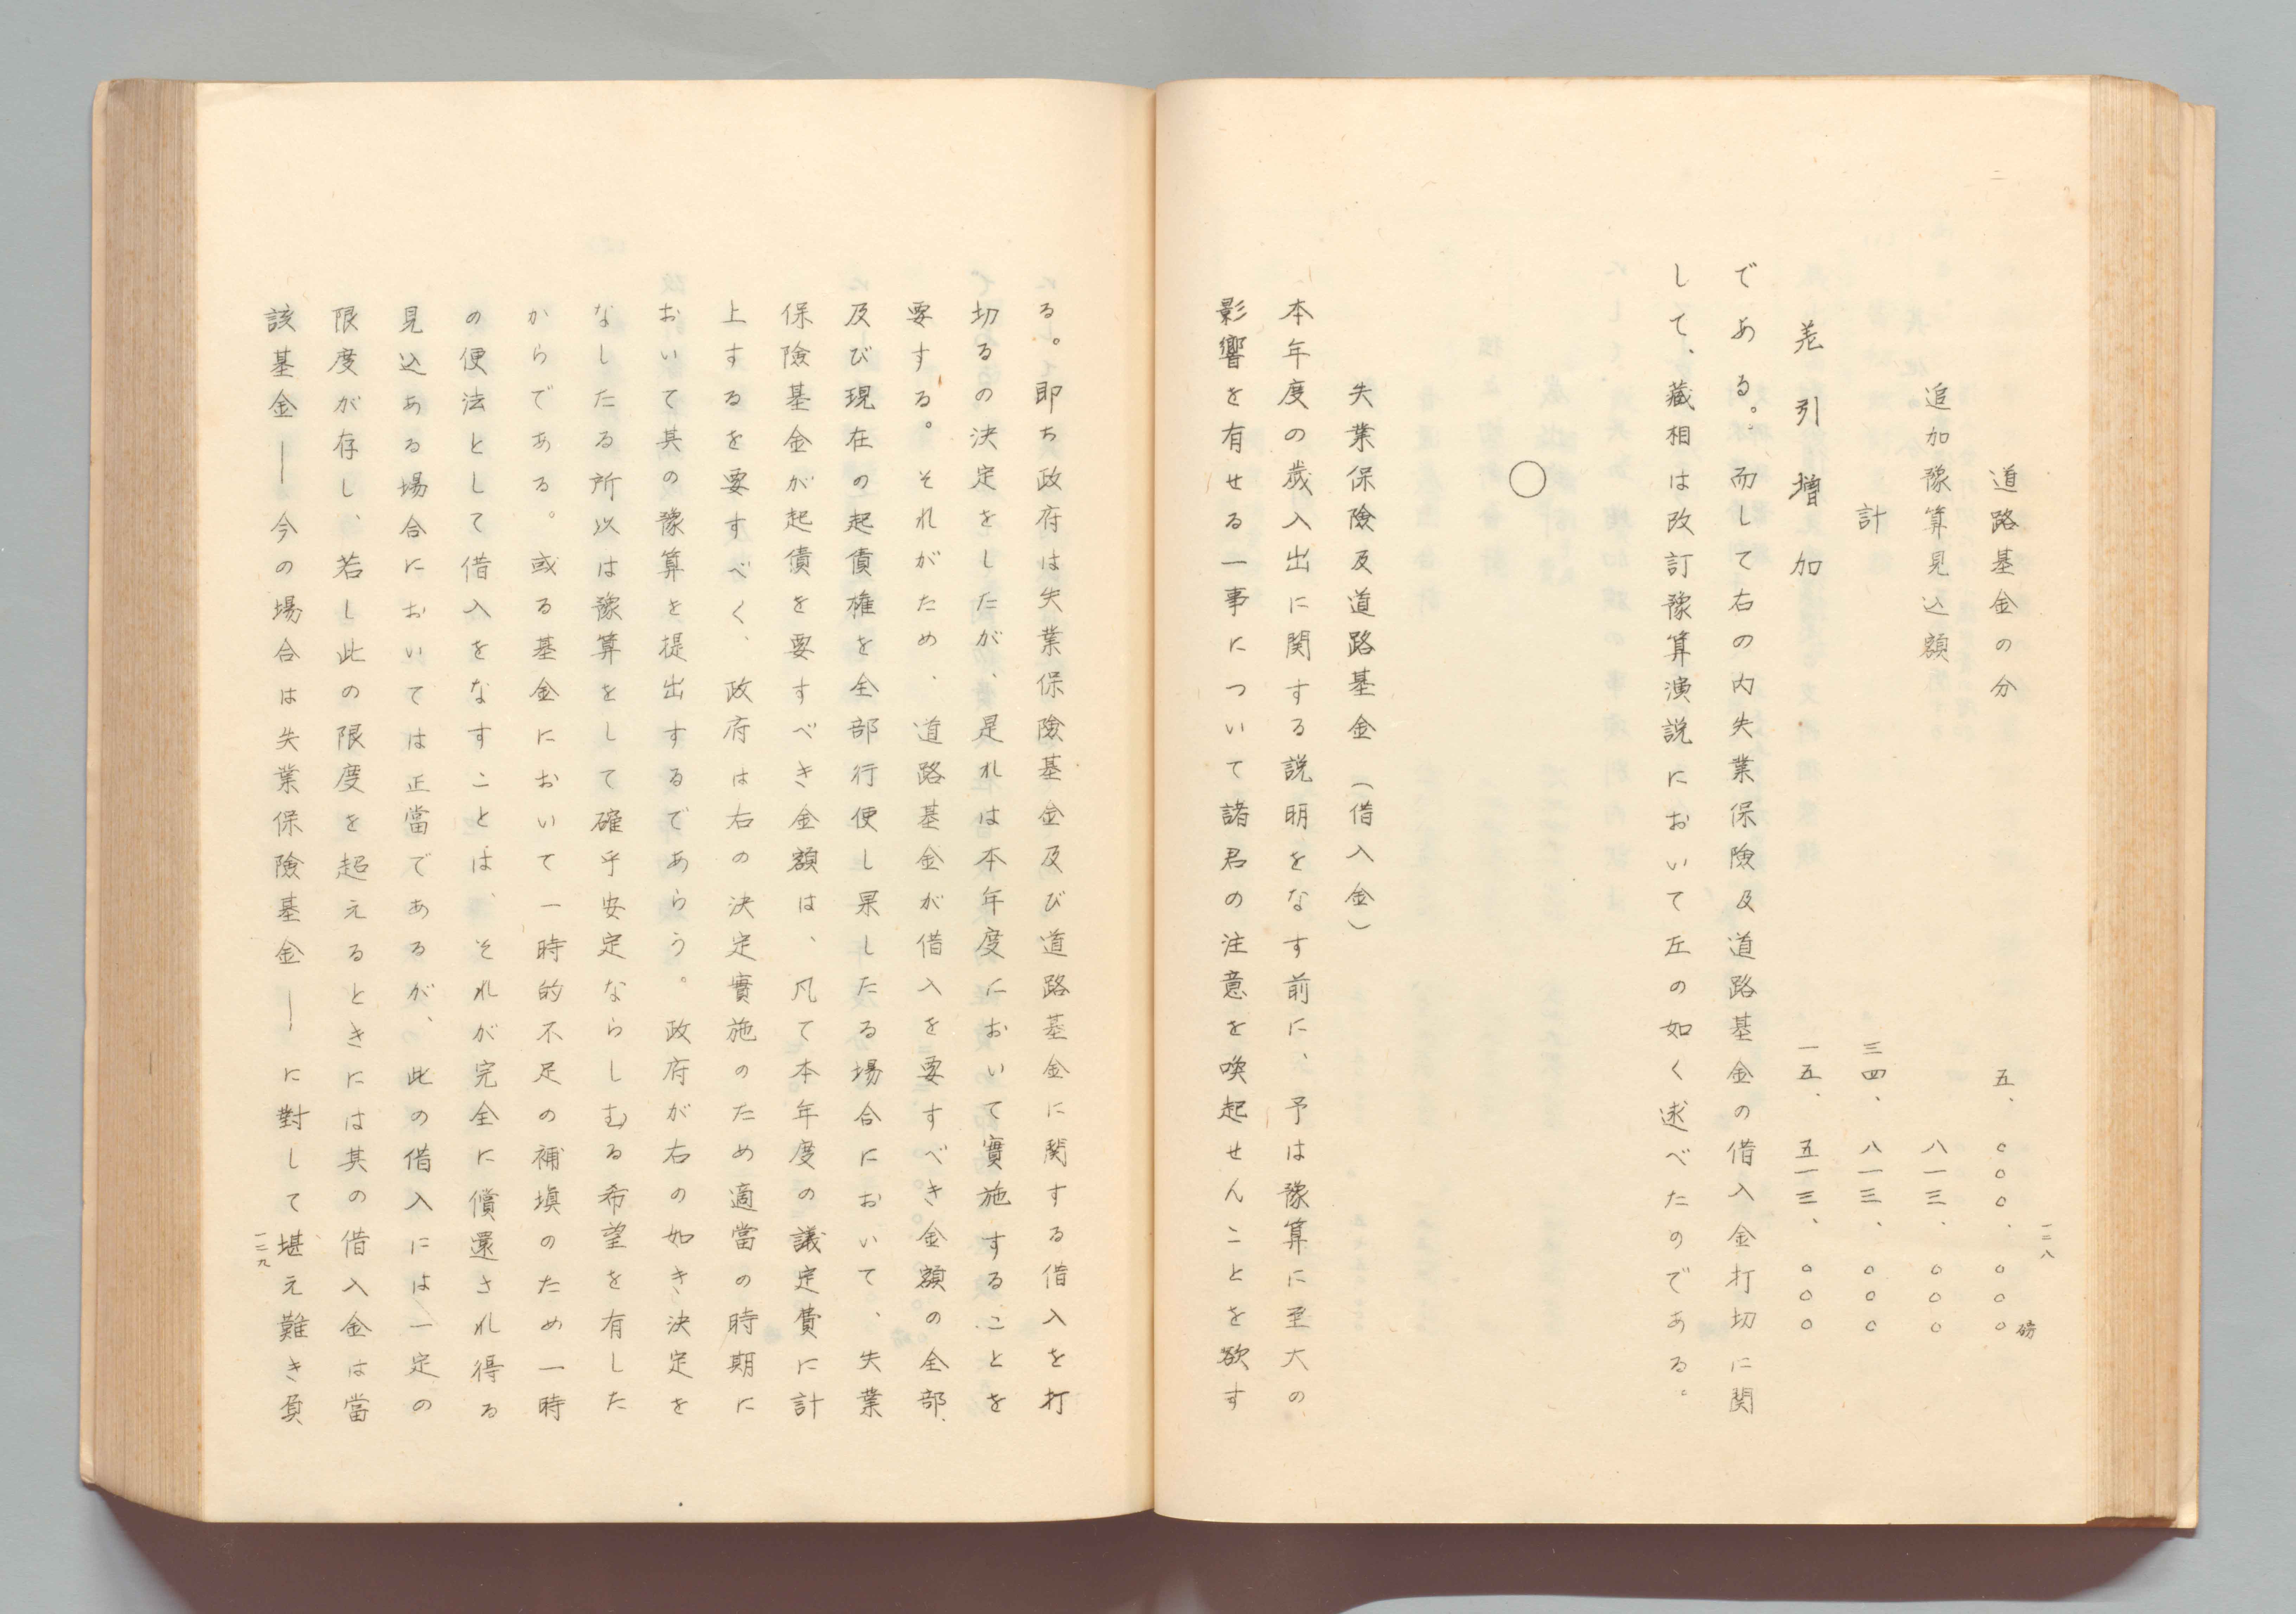 道路基金の分　五、〇〇〇、〇〇〇磅
追加豫算見込額　八一三、〇〇〇
計　三四、八一三、〇〇〇
差引増加　一五、五一三、〇〇〇
である。而して右の内失業保險及道路基金の借入金打切に関
して、藏相は改訂豫算演説において左の如く述べたのである。
〇
失業保險及道路基金（借入金）
本年度の歳入出に関する説明をなす前に、予は豫算に至大の
影響を有せる一事について諸君の注意を喚起せんことを欲す
一二八
る。即ち政府は失業保險基金及び道路基金に関する借入を打
切るの決定をしたが、是れは本年度において實施することを
要する。それがため、道路基金が借入を要すべき金額の全部、
及び現在の起債權を全部行使し果したる場合において、失業
保險基金が起債を要すべき金額は、凡て本年度の議定費に計
上するを要すべく、政府は右の決定實施のため適當の時期に
おいて其の豫算を提出するであらう。政府が右の如き決定を
なしたる所以は豫算をして確乎安定ならしむる希望を有した
からである。或る基金において一時的不足の補塡のため一時
の便法として借入をなすことは、それが完全に償還され得る
見込ある場合においては正當であるが、此の借入には一定の
限度が存し、若し此の限度を超えるときには其の借入金は當
該基金―今の場合は失業保險基金―に對して堪え難き負
一二九